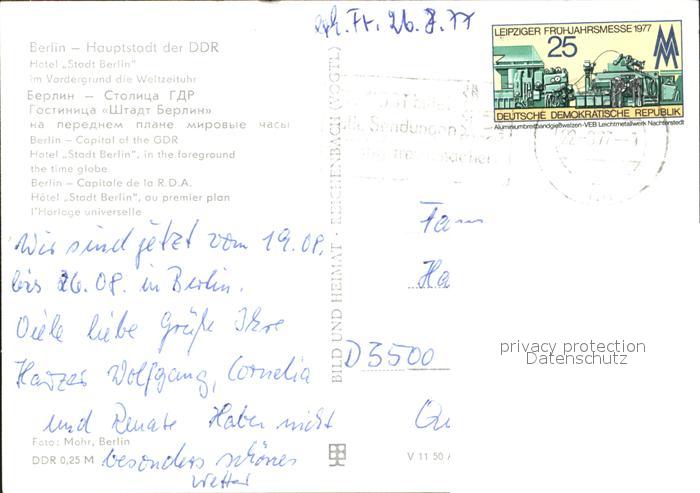 Berlin – Hauptstadt der DDR
Hotel „Stadt Berlin"
im Vordergrund die Weltzeituhr
Берлин – Столица ГДР
Гостиница «Штадт Берлин»
на переднем плане мировые часы
Berlin – Capital of the GDR
Hotel „Stadt Berlin", in the foreground
the time globe
Berlin – Capitale de la R.D.A.
Hôtel „Stadt Berlin", au premier plan
l'Horloge universelle
Wir sind jetzt vom 19.08.
bis 26.08. in Berlin.
Viele liebe Grüße Ihre
Wolfgang, Cornelia
und Renate Haben nicht
besonders schönes
Wetter
Foto: Mohr, Berlin
DDR 0,25 M
BILD UND HEIMAT · REICHENBACH (VOGTL)
V 11 50
26.8.77
LEIPZIGER FRÜHJAHRSMESSE 1977
25
MM
DEUTSCHE DEMOKRATISCHE REPUBLIK
Aluminiumbreitbandgießwalzen-VEB Leichtmetallwerk Nachterstedt
Sendungen
Fam
Ha
D 3500
privacy protection
Datenschutz